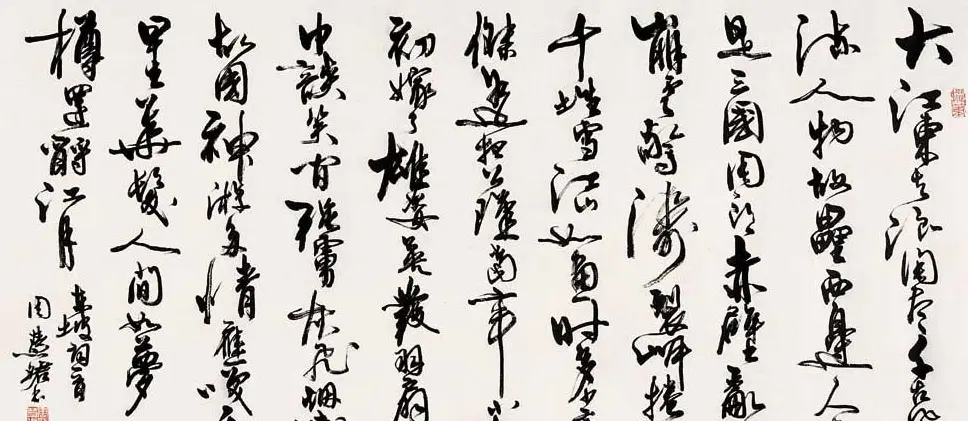 大江東去浪淘盡千古
流人物故壘西邊人
是三國周郎赤壁亂
崩雲驚濤裂岸捲
千堆雪江山如畫一時多少
傑遙想公瑾當年小
初嫁了雄姿英發羽扇
巾談笑間強虜灰飛煙
故國神游多情應笑
早生華髮人間如夢
樽還酹江月
東坡詞一首
周慧珺書